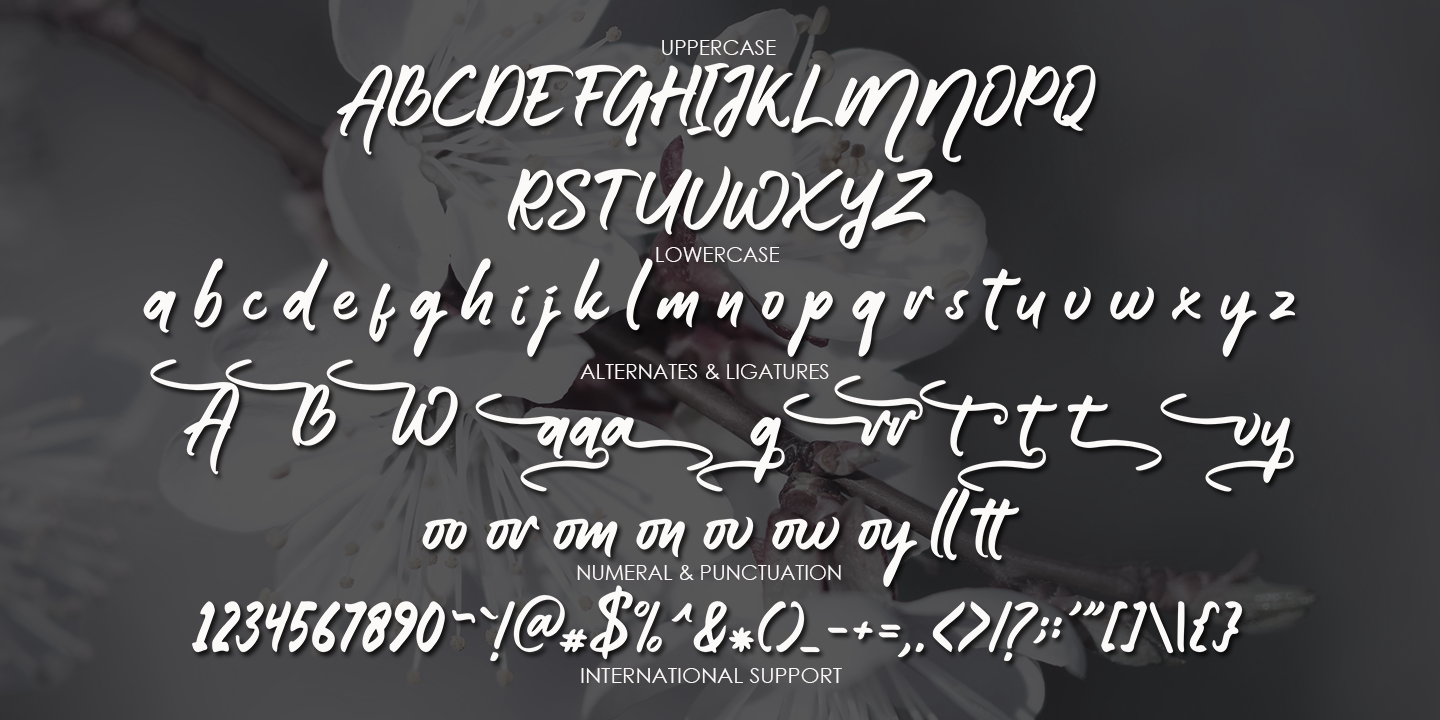 UPPERCASE
ABCDEFGHIJKLMNOPQ
RSTUVWXYZ
LOWERCASE
a b c d e f g h i j k l m n o p q r s t u v w x y z
ALTERNATES & LIGATURES
A B W aqa g rr t t t vy
oo or om on ov ow oy ll tt
NUMERAL & PUNCTUATION
1234567890~`!@#$%^&*()_-+=,.<>/?;:'"[]\|{}
INTERNATIONAL SUPPORT